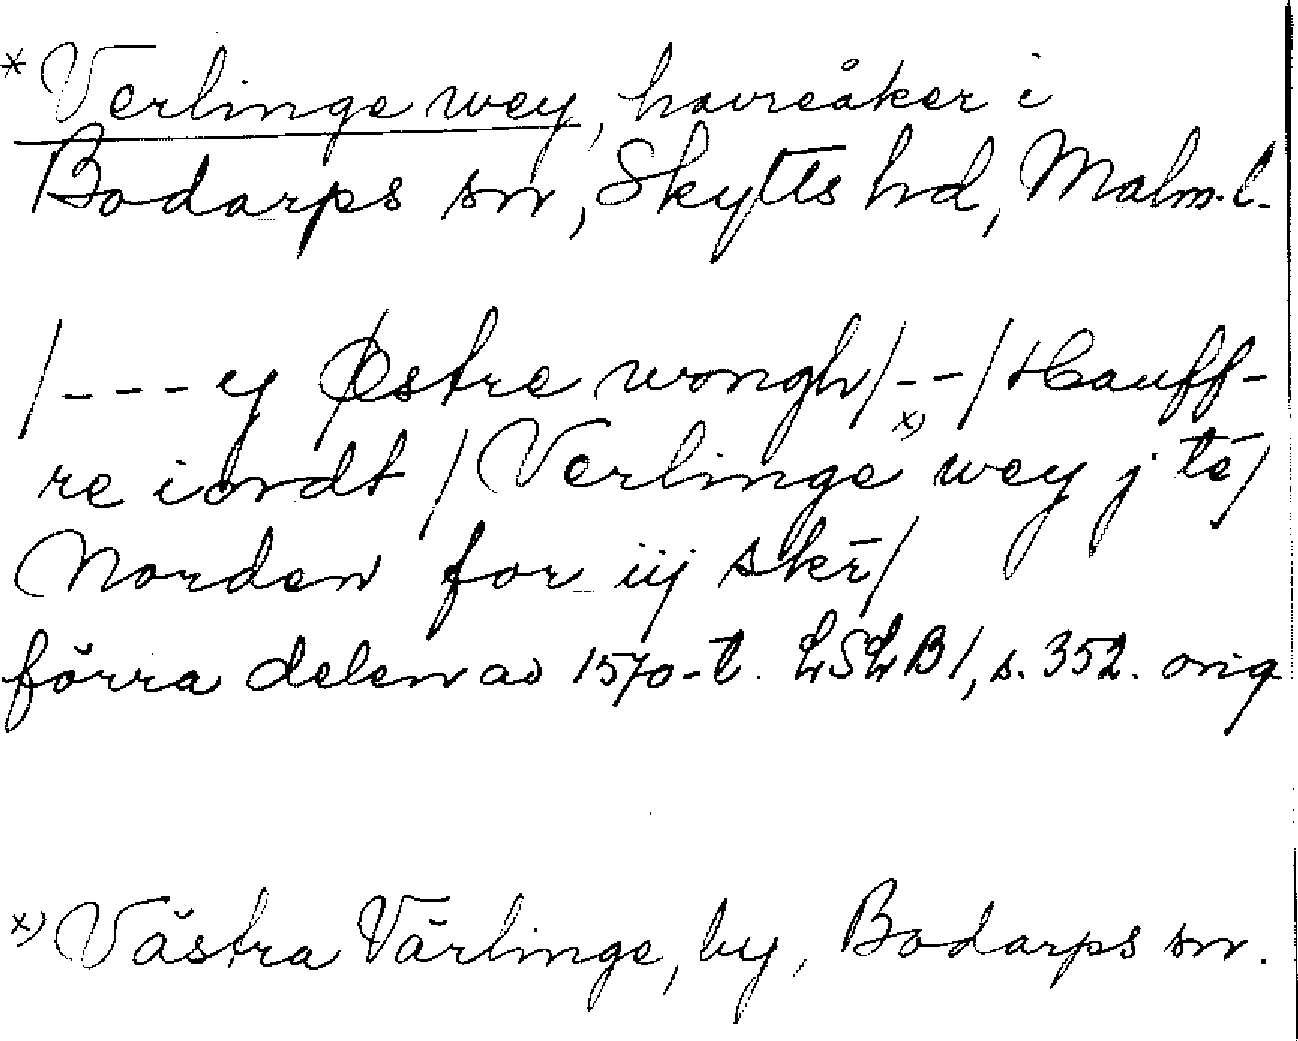 * Verlinge wey, havreåker i
Bodarps sn, Skytts hd, Malm.l.
/---y Østre wongh/--/Hauff-
re iordt / Verlinge x) wey j tē/
Norden for iij skr̄/
förra delen av 1570-t. LSLB1, s. 352. orig
x) Västra Värlinge, by, Bodarps sn.